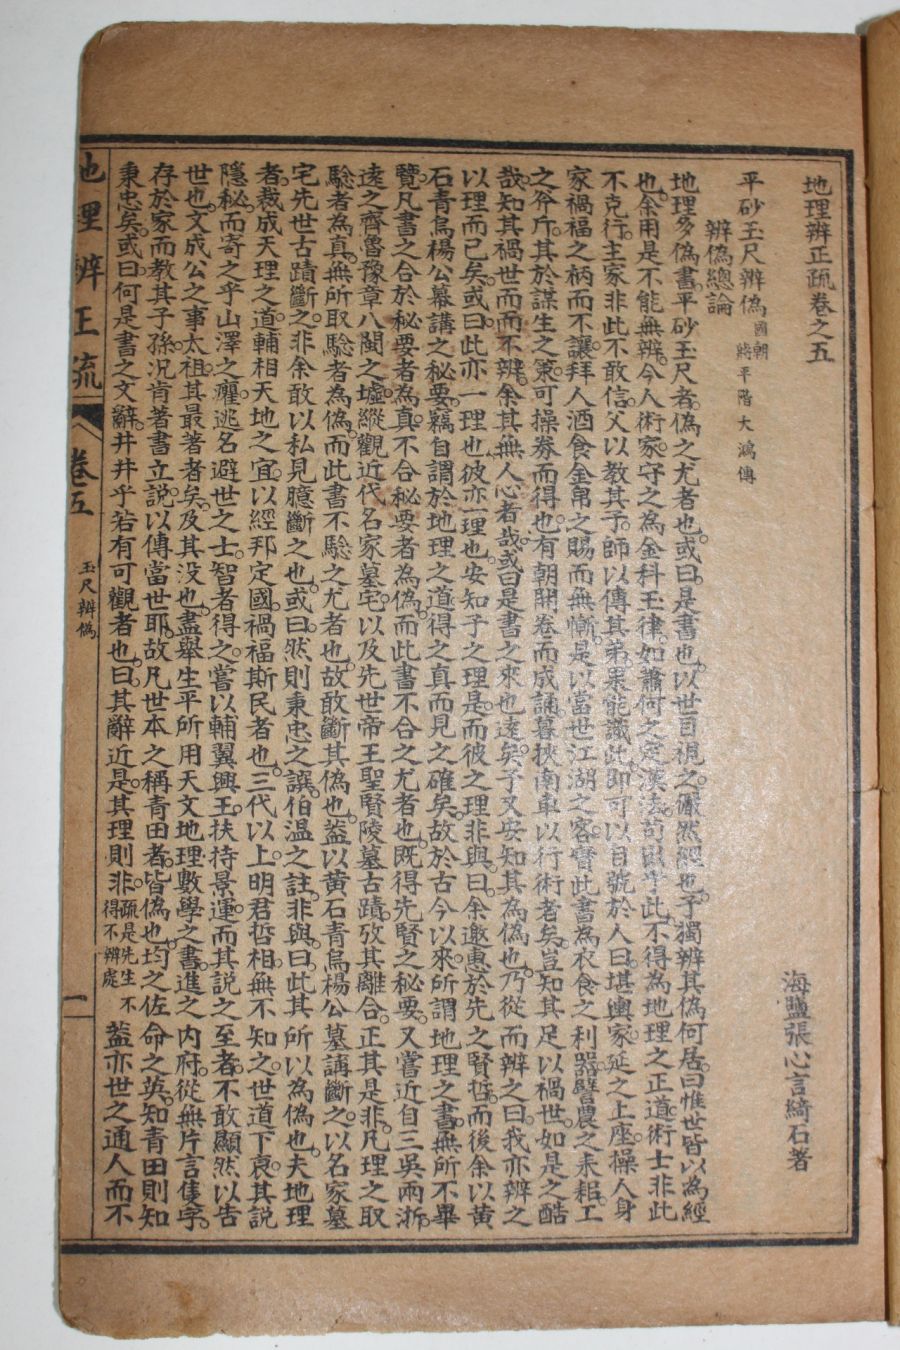 地理辨正疏卷之五
海鹽張心言綺石著
平砂玉尺辨偽 國朝 蔣平階大鴻傳
辨偽總論
地理多偽書。平砂玉尺者。偽之尤者也。或曰。是書也。以世目視之。儼然經也。子獨辨其偽何居。曰惟世皆以為經
也。余用是不能無辨。今人術家。守之為金科玉律。如蕭何之定漢法。苟出乎此。不得為地理之正道。術士非此
不克行。主家非此不敢信。父以教其子。師以傳其弟。果能識此。即可以自號於人曰。堪輿家延之上座。操人身
家禍福之柄而不讓。拜人酒食金帛之賜而無慚。是以當世江湖之客。寶此書為衣食之利器。譬農之耒耜。工
之斧斤。其於謀生之策。可操券而得也。有朝開卷而成誦。暮挾南車以行術者矣。豈知其足以禍世。如是之酷
哉。知其禍世而而不辨。余其無人心者哉。或曰是書之來也遠矣。子又安知其為偽也。乃從而辨之曰。我亦辨之
以理而已矣。或曰。此亦一理也。彼亦一理也。安知子之理是。而彼之理非與。曰。余邀惠於先之賢哲。而後余以黃
石青烏楊公幕講之秘要。竊自謂於地理之道。得之真而見之確矣。故於古今以來。所謂地理之書。無所不畢
覽。凡書之合於秘要者為真。不合秘要者為偽。而此書不合之尤者也。既得先賢之秘要。又嘗近自三吳兩浙。
遠之齊魯豫章八閩之墟。縱觀近代名家墓宅。以及先世帝王聖賢陵墓古蹟。攷其離合。正其是非。凡理之取
驗者為真。無所取驗者為偽。而此書不驗之尤者也。故敢斷其偽也。蓋以黃石青烏楊公墓講斷之。以名家墓
宅先世古蹟斷之。非余敢以私見臆斷之也。或曰。然則秉忠之譔。伯温之註。非與。曰。此其所以為偽也。夫地理
者。裁成天理之道。輔相天地之宜。以經邦定國。禍福斯民者也。三代以上。明君哲相。無不知之。世道下衰。其說
隱秘。而寄之乎山澤之癯。逃名避世之士。智者得之。嘗以輔翼興王。扶持景運。而其說之至者。不敢顯然以告
世也。文成公之事太祖。其最著者矣。及其没也。盡舉生平所用天文地理數學之書。進之內府。從無片言隻字。
存於家而教其子孫。況肯著書立說。以傳當世耶。故凡世本之稱青田者。皆偽也。均之佐命之英。知青田則知
秉忠矣。或曰。何是書之文辭。井井乎若有可觀者也。曰。其辭近是。其理則非。疏是先生不得不辨處 蓋亦世之通人而不
地理辨正疏 卷五 玉尺辨偽 一